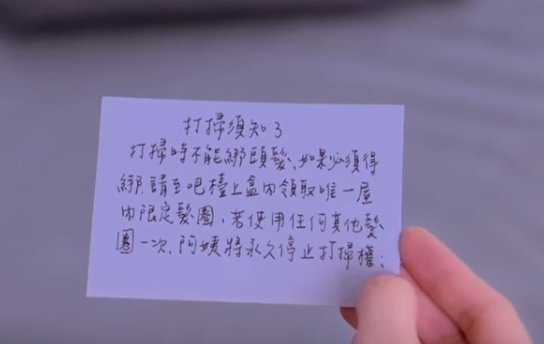 打掃須知3
打掃時不能綁頭髮、如果必須得
綁請至吧檯上盒內領取唯一屋
內限定髮圈、若使用任何其他髮
圈一次,阿姨將永久停止打掃權;